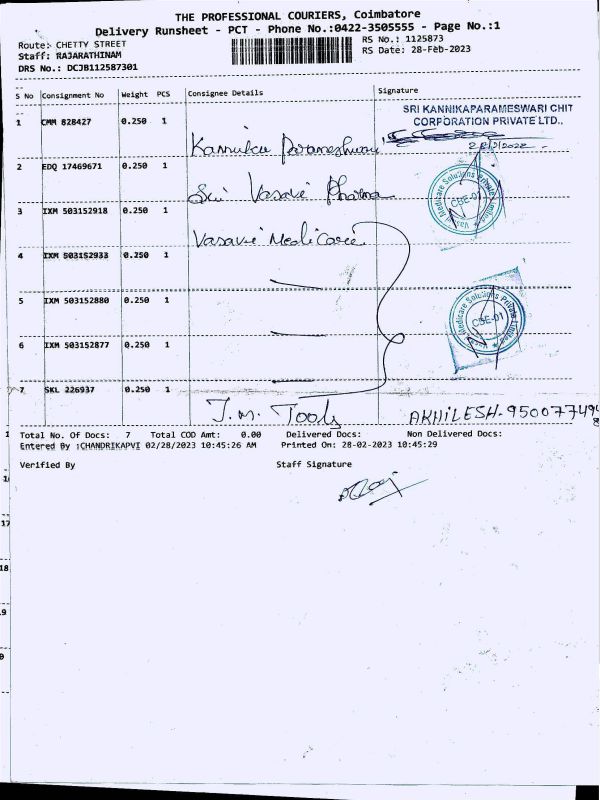 THE PROFESSIONAL COURIERS, Coimbatore
Delivery Runsheet - PCT - Phone No.:0422-3505555 - Page No.:1
Route: CHETTY STREET
RS No.: 1125873
Staff: RAJARATHINAM
RS Date: 28-Feb-2023
DRS No.: DCJB112587301
S No Consignment No Weight PCS Consignee Details Signature
SRI KANNIKAPARAMESWARI CHIT
CORPORATION PRIVATE LTD.,
1 CMM 828427 0.250 1
Kannika Parameshwari
2 EDQ 17469671 0.250 1
Sri Vasavi Pharma
Vasavi Medicare Solutions Private Limited
CBE-01
3 IXM 503152918 0.250 1
Vasavi Medicare
4 IXM 503152933 0.250 1
5 IXM 503152880 0.250 1
Medicare Solutions Private Limited
CBE-01
6 IXM 503152877 0.250 1
7 SKL 226937 0.250 1
J.M. Tools AKHILESH-950077494
Total No. Of Docs: 7 Total COD Amt: 0.00 Delivered Docs: Non Delivered Docs:
Entered By :CHANDRIKAPVI 02/28/2023 10:45:26 AM Printed On: 28-02-2023 10:45:29
Verified By Staff Signature
1
17
18